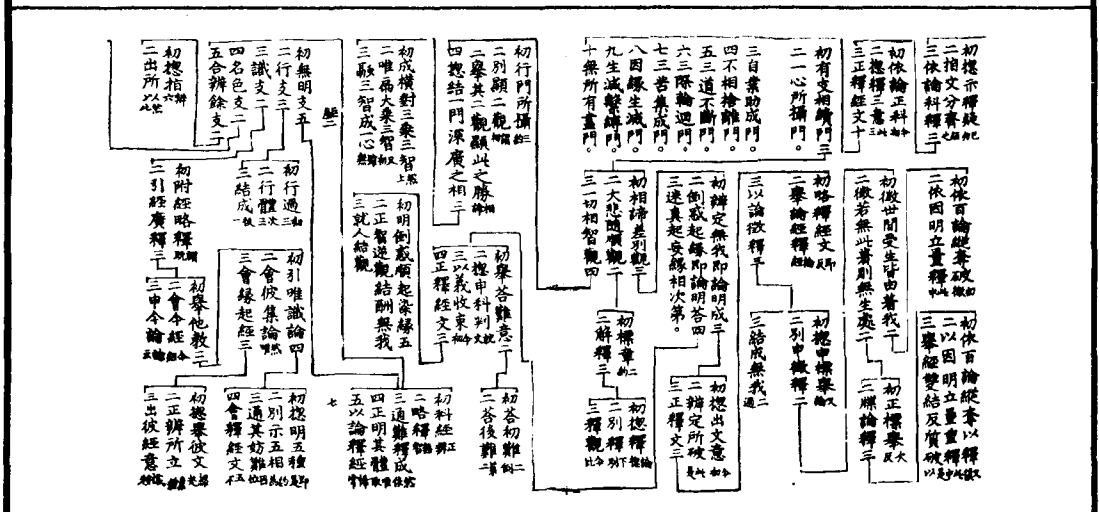 初揔示釋疑
二指文分齊
三依論科釋三
初依論正科
二揔釋三意三
三正釋經文十
初有支相續門三
二一心所攝門。
三自業助成門。
四不相捨離門。
五三道不斷門。
六三際輪迴門。
七三苦集成門。
八因緣生滅門。
九生滅繫縛門。
十無所有盡門。
初行門所攝
二別顯二觀
二舉其二觀顯此之勝
四揔結一門深廣之相二
初成橫對三乘三智
二唯爲大乘三智
三融三智成一心
初無明支五
二行支三
三識支二
四名色支二
五合辨餘支二
初揔指
二出所以
初依百論縱奪破
二依因明立量釋
初徵世間受生皆由著我二
二徵若無此著則無生處二
初略釋經文
二舉論經釋
三以論徵釋三
初辨定無我即論明成三
二倒惑起緣即論明答四
三迷真起妄緣相次第。
初相諦差別觀三
二大悲隨順觀
三一切相智觀四
初舉答難意二
二揔申科判
三以義收束
四正釋經文三
初明倒惑順起染緣五
二正智逆觀結酬無我
三就人結觀
初行過
二行體
三結成
初附經略釋
二引經廣釋三
初引唯識論四
二會彼集論
三會緣起經三
初舉他教三
二會今經
三申今論
初依百論縱奪以釋
二以因明立量重釋
三舉經雙結反質破
初正標舉
二牒論釋三
初揔申標舉
二別申徵釋二
三結成無我
初揔出文意
二辨定所破
三正釋文三
初標章
二解釋三
初揔釋
二別釋
三釋觀
初答初難
二答後難
初科經
二略釋
三通難釋成
四正明其體
五以論釋經
初揔明五種
二別示五相
三通其妨難
四會釋經文
初揔舉彼文
二正辨所立
三出彼經意
七